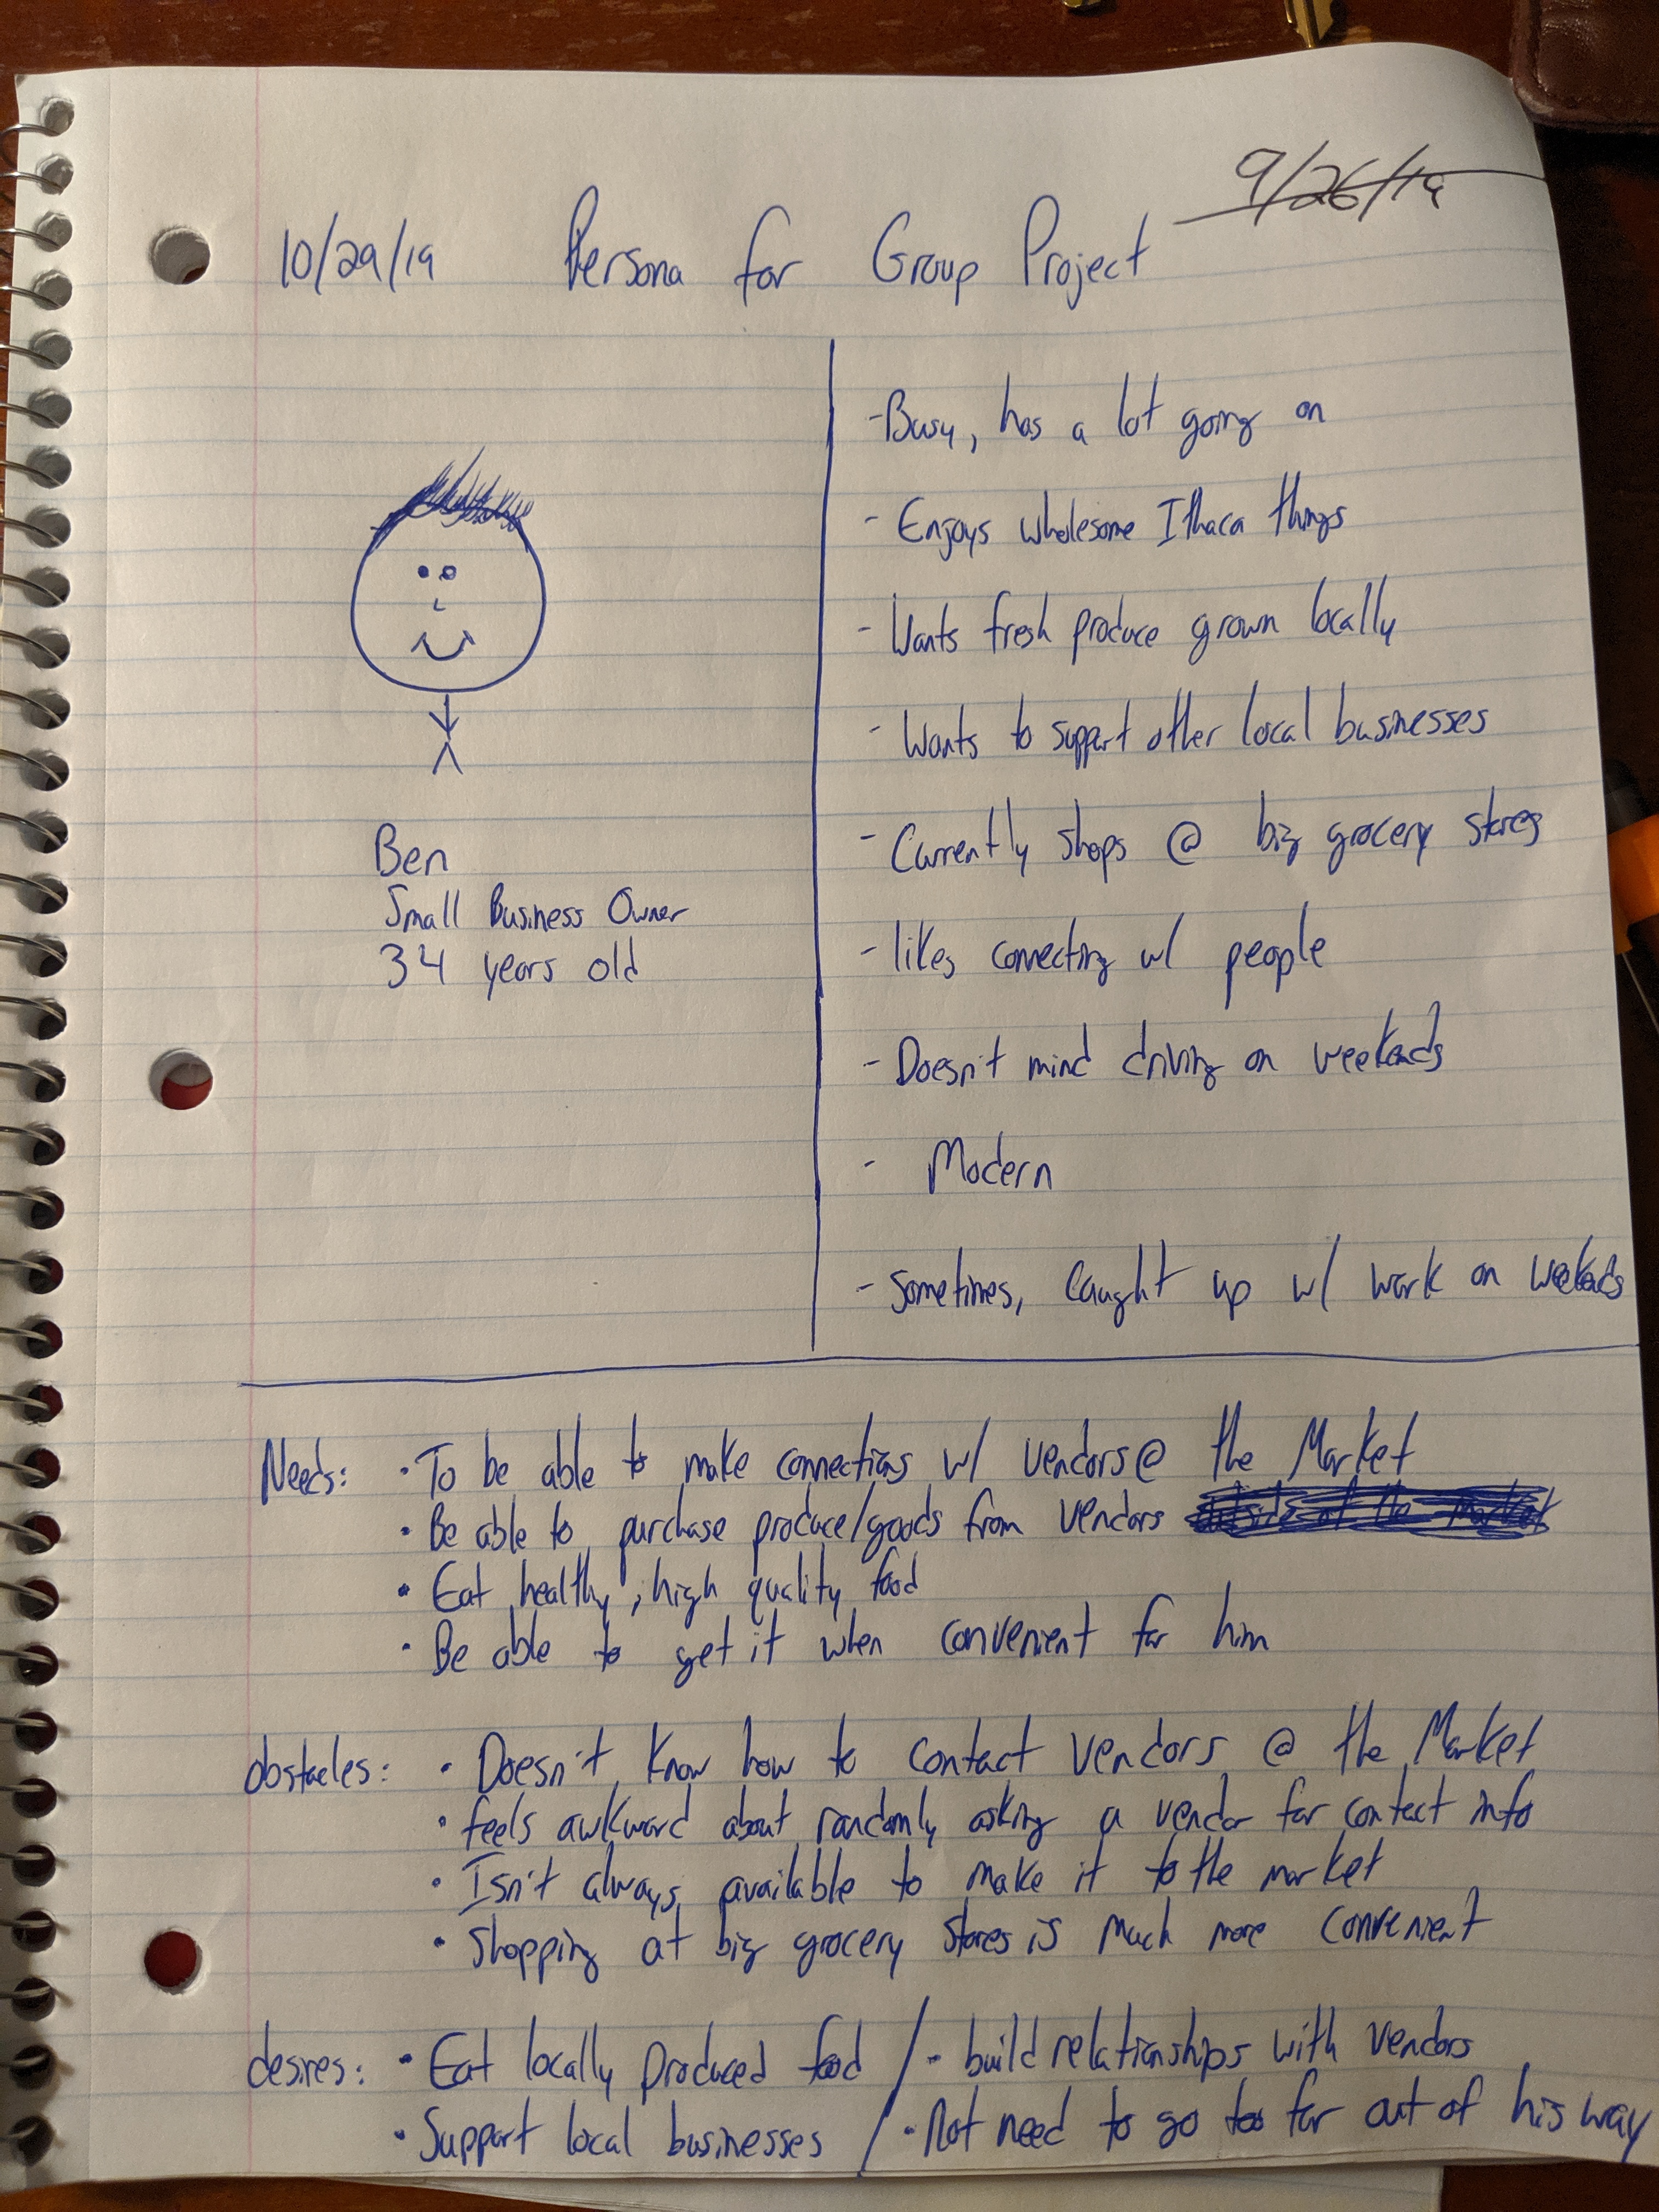 9/26/19
10/29/19 Persona for Group Project
Ben
Small Business Owner
34 years old
- Busy, has a lot going on
- Enjoys wholesome Ithaca things
- Wants fresh produce grown locally
- Wants to support other local businesses
- Currently shops @ big grocery stores
- likes connecting w/ people
- Doesn't mind driving on weekends
- Modern
- Sometimes, caught up w/ work on weekends
Needs: • To be able to make connections w/ vendors @ the Market
• Be able to purchase produce/goods from vendors outside of the market
• Eat healthy, high quality food
• Be able to get it when convenient for him
obstacles: • Doesn't know how to contact vendors @ the Market
• feels awkward about randomly asking a vendor for contact info
• Isn't always available to make it to the market
• Shopping at big grocery stores is much more convenient
desires: • Eat locally produced food / • build relationships with vendors
• Support local businesses / • Not need to go too far out of his way